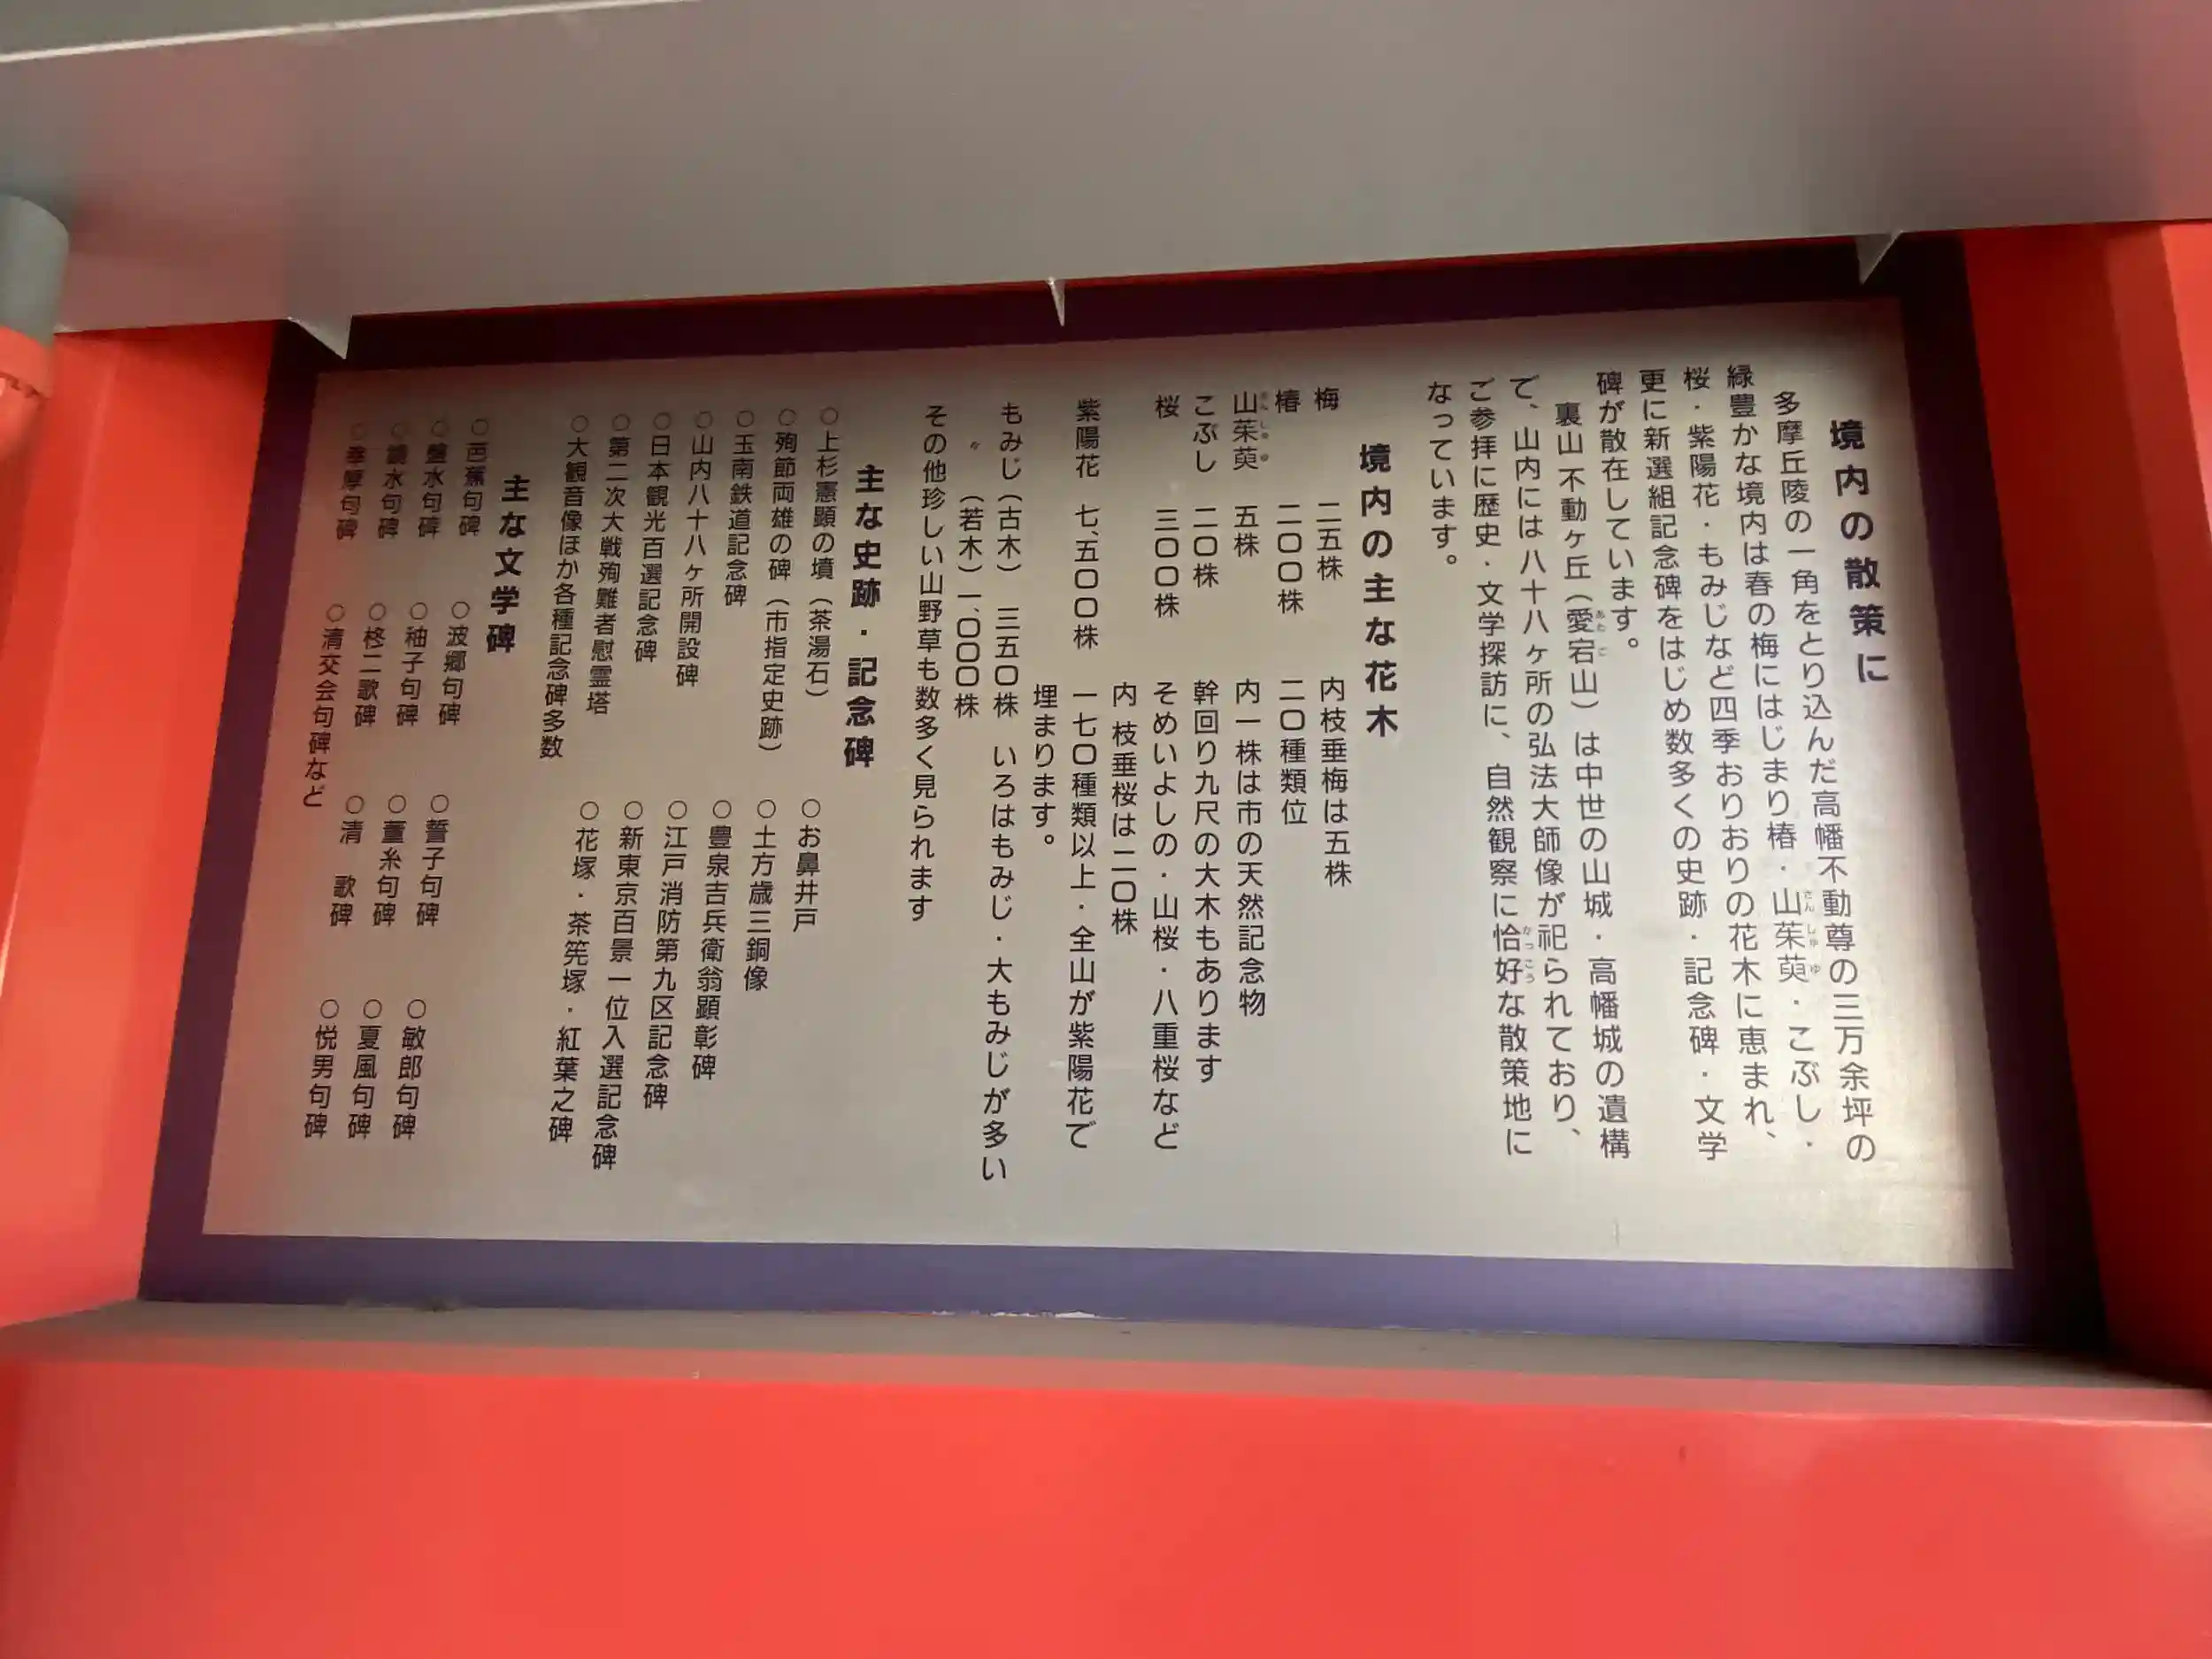 境内の散策に
多摩丘陵の一角をとり込んだ高幡不動尊の三万余坪の
緑豊かな境内は春の梅にはじまり椿・山茱萸・こぶし・
さんしゅゆ
桜・紫陽花・もみじなど四季おりおりの花木に恵まれ、
更に新選組記念碑をはじめ数多くの史跡・記念碑・文学
碑が散在しています。
裏山 不動ヶ丘（愛宕山）は中世の山城・高幡城の遺構
あたご
で、山内には八十八ヶ所の弘法大師像が祀られており、
ご参拝に歴史・文学探訪に、自然観察に恰好な散策地に
かっこう
なっています。
境内の主な花木
梅 二五株 内枝垂梅は五株
椿 二〇〇株 二〇種類位
山茱萸 五株 内一株は市の天然記念物
さんしゅゆ
こぶし 二〇株 幹回り九尺の大木もあります
桜 三〇〇株 そめいよしの・山桜・八重桜など
内 枝垂桜は二〇株
紫陽花 七、五〇〇株 一七〇種類以上・全山が紫陽花で
埋まります。
もみじ（古木） 三五〇株 いろはもみじ・大もみじが多い
〃 （若木）一、〇〇〇株
その他珍しい山野草も数多く見られます
主な史跡・記念碑
○上杉憲顕の墳（茶湯石） ○お鼻井戸
○殉節両雄の碑（市指定史跡） ○土方歳三銅像
○玉南鉄道記念碑 ○豊泉吉兵衛翁顕彰碑
○山内八十八ヶ所開設碑 ○江戸消防第九区記念碑
○日本観光百選記念碑 ○新東京百景一位入選記念碑
○第二次大戦殉難者慰霊塔 ○花塚・茶筅塚・紅葉之碑
○大観音像ほか各種記念碑多数
主な文学碑
○芭蕉句碑 ○波郷句碑 ○誓子句碑 ○敏郎句碑
○ 水句碑 ○秞子句碑 ○菫糸句碑 ○夏風句碑
○ 水句碑 ○柊二歌碑 ○清 歌碑 ○悦男句碑
○ 句碑 ○清交会句碑など